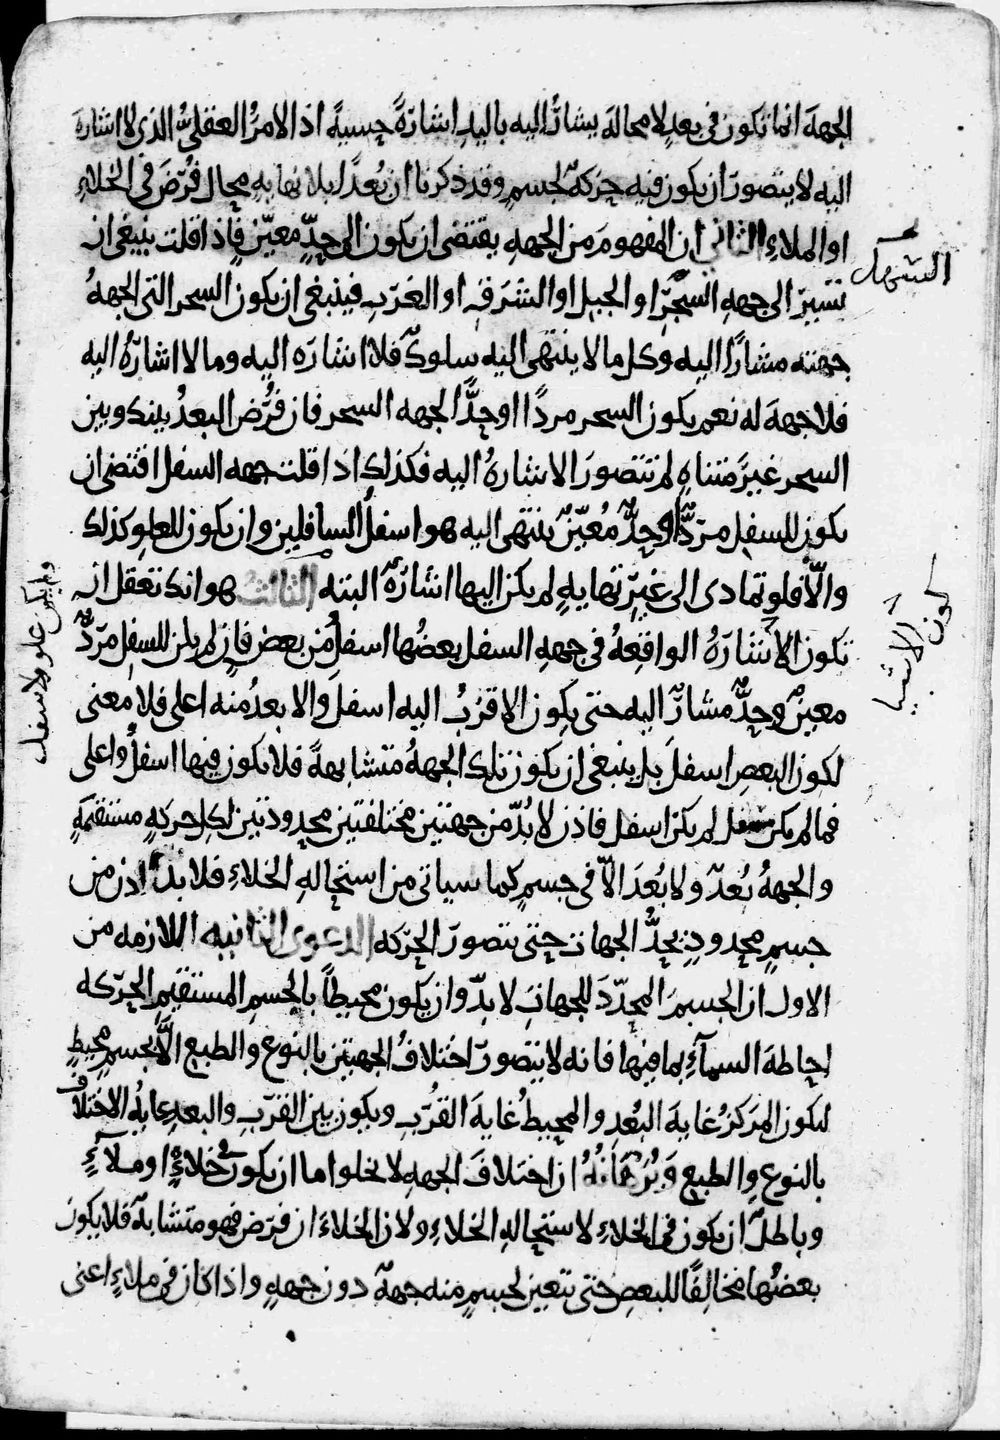 الجهة انما تكون في بعد لا محالة يشار اليه باليد اشارة حسية اذ الامر العقلي الذي لا اشارة
اليه لا يتصور ان يكون فيه حركة لجسم وقد ذكرنا ان بعدا بلا نهاية محال فرض في الخلاء
او الملاء الثاني ان المفهوم من الجهة يقتضي ان يكون الى حد معين فاذا قلت ينبغي ان
تشير الى جهة الشجر او الجبل او الشرق او الغرب فينبغي ان يكون السحر التي الجهة
جهته مشارا اليه وكل ما لا ينتهي اليه سلوك فلا اشارة اليه وما لا اشارة اليه
فلا جهة له نعم يكون السحر مردا او حدا لجهه السحر فان فرض البعد بينك وبين
السحر غير متناه لم تتصور الاشارة اليه فكذلك اذا قلت جهه السفل اقتضى ان
يكون للسفل مرد او حد معين ينتهي اليه هو اسفل السافلين وان يكون للعلو كذلك
والا فلو تمادى الى غير نهاية لم يكن اليها اشارة البتة الثالث هو انك تعقل ان
تكون الاشارة الواقعة في جهة السفل بعضها اسفل من بعض فان لم يكن للسفل مرد
معين وحد مشار اليه حتى يكون الاقرب اليه اسفل والابعد منه اعلى فلا معنى
لكون البعض اسفل بل ينبغي ان يكون تلك الجهة متشابهة فلا يكون فيها اسفل واعلى
فما لم يكن سفل لم يكن اسفل فاذن لا بد من جهتين مختلفتين محدودتين لكل حركة مستقيمة
والجهة بعد ولا بعد الا في جسم كما سياتي من استحالة الخلاء فلا بد اذن من
جسم محدود يحد الجهات حتى يتصور الحركه الدعوى الثانيه اللازمه من
الاول ان الجسم المحدد للجهات لا بد وان يكون محيطا بالجسم المستقيم الحركه
احاطة السماء بما فيها فانه لا يتصور اختلاف الجهتين بالنوع والطبع الا بجسم محيط
ليكون المركز غاية البعد والمحيط غاية القرب ويكون بين القرب والبعد غاية الاختلاف
بالنوع والطبع وبرهانه ان اختلاف الجهة لا يخلوا اما ان يكون في خلاء او ملاء
وباطل ان يكون في الخلاء لاستحالة الخلاء ولان الخلاء ان فرض فهو متشابه فلا يكون
بعضها مخالفا للبعض حتى تتعين لجسم منه جهة دون جهة واذا كان في ملاء اعني
كون
الاشيا
ولم يكن علو ولا سفل